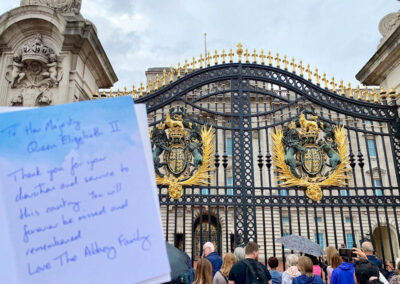 To Her Majesty
Queen Elizabeth II
Thank you for your
devotion and service to
this country. You will
forever be missed and
remembered
Love The Family